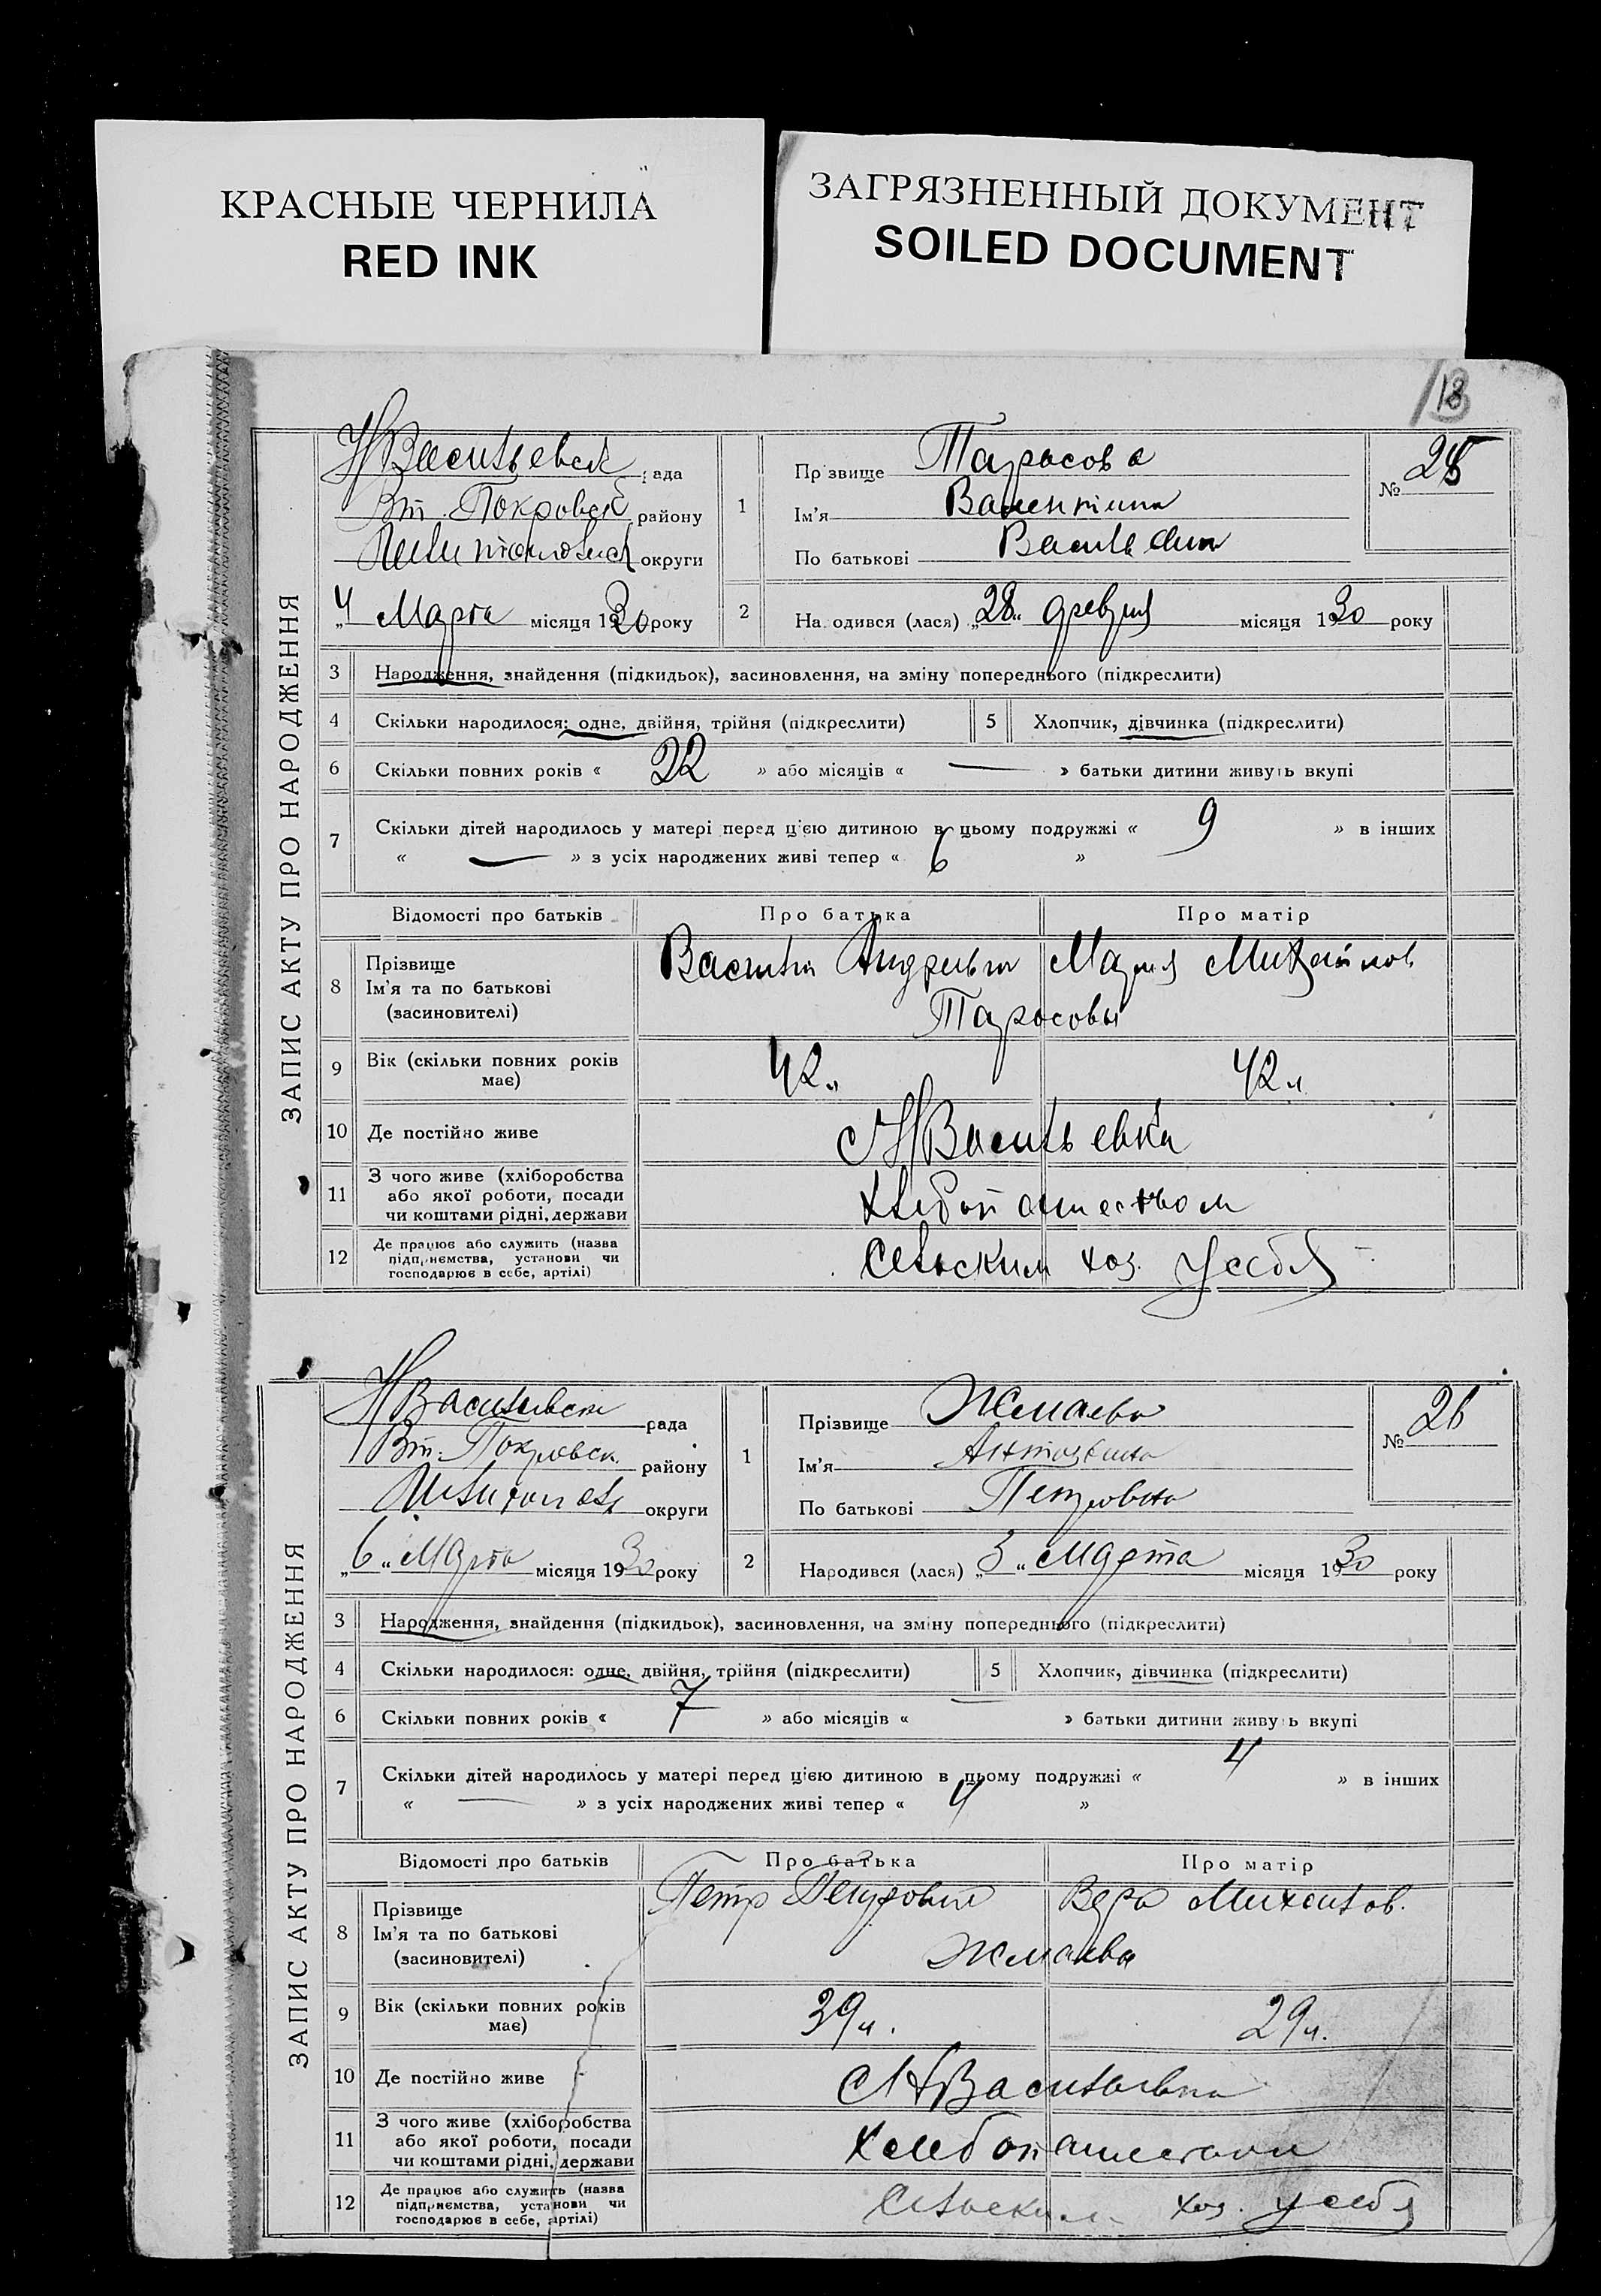 КРАСНЫЕ ЧЕРНИЛА
RED INK
ЗАГРЯЗНЕННЫЙ ДОКУМЕНТ
SOILED DOCUMENT
13
ЗАПИС АКТУ ПРО НАРОДЖЕННЯ
НВасильевск рада
Вт. Покровск району
округи
„4 Марта місяця 1930 року
1
Прізвище Тарасова
Ім'я Валентина
По батькові
№ 25
2
Народився (лася) „28“ февруля місяця 1930 року
3 Народження, знайдення (підкидьок), засиновлення, на зміну попереднього (підкреслити)
4 Скільки народилося: одне, двійня, трійня (підкреслити)
5 Хлопчик, дівчинка (підкреслити)
6 Скільки повних років « 22 » або місяців « — » батьки дитини живуть вкупі
7 Скільки дітей народилось у матері перед цією дитиною в цьому подружжі « 9 » в інших
« — » з усіх народжених живі тепер « 6 »
Відомості про батьків Про батька Про матір
8 Прізвище
Ім'я та по батькові
(засиновителі)
Мария Михайлов
Тарасовы
9 Вік (скільки повних років
має)
42 л 42 л
10 Де постійно живе с НВасильевка
11 З чого живе (хліборобства
або якої роботи, посади
чи коштами рідні, держави
хлебопашеством
12 Де працює або служить (назва
підприємства, установи чи
господарює в себе, артілі)
Сельским хоз. у себя
ЗАПИС АКТУ ПРО НАРОДЖЕННЯ
НВасильевск рада
Вт. Покровск. району
округи
„6“ Марта місяця 1930 року
1
Прізвище Жмаева
Ім'я Антонина
По батькові Петровна
№ 26
2
Народився (лася) „3“ Марта місяця 1930 року
3 Народження, знайдення (підкидьок), засиновлення, на зміну попереднього (підкреслити)
4 Скільки народилося: одне, двійня, трійня (підкреслити)
5 Хлопчик, дівчинка (підкреслити)
6 Скільки повних років « 7 » або місяців « — » батьки дитини живуть вкупі
7 Скільки дітей народилось у матері перед цією дитиною в цьому подружжі « 4 » в інших
« — » з усіх народжених живі тепер « 4 »
Відомості про батьків Про батька Про матір
8 Прізвище
Ім'я та по батькові
(засиновителі)
Петр Петрович Вера Михайлов.
Жмаевы
9 Вік (скільки повних років
має)
39 л. 29 л.
10 Де постійно живе с НВасильевка
11 З чого живе (хліборобства
або якої роботи, посади
чи коштами рідні, держави
хлебопашеством
12 Де працює або служить (назва
підприємства, установи чи
господарює в себе, артілі)
Сельским хоз. у себя